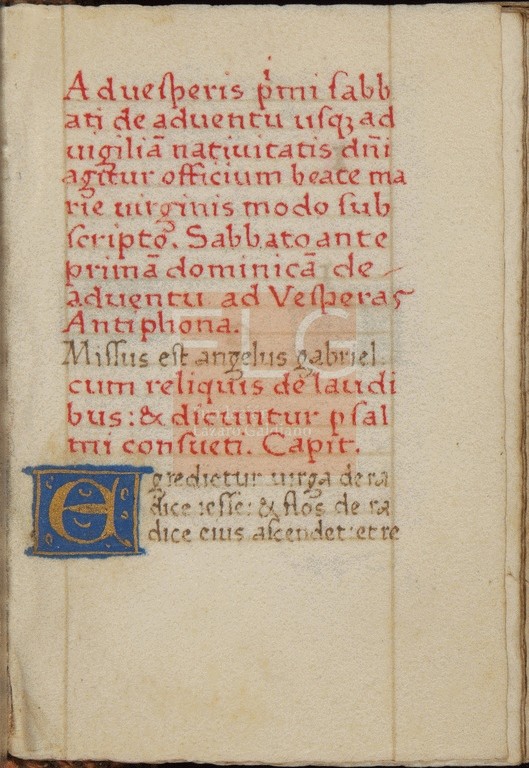 Ad uesperis p̄mi sabb
ati de aduentu usqꝫ ad
uigiliā natiuitatis dn̄i
agitur officium beate ma
rie uirginis modo sub
scripto. Sabbato ante
primā dominicā de
aduentu ad Vesperas
Antiphona.
Missus est angelus gabriel.
cum reliquis de laudi
bus: & dicuntur psal
mi consueti. Capit.
Egredietur uirga de ra
dice iesse: & flos de ra
dice eius ascendet: et re
FLG
Lázaro Galdiano